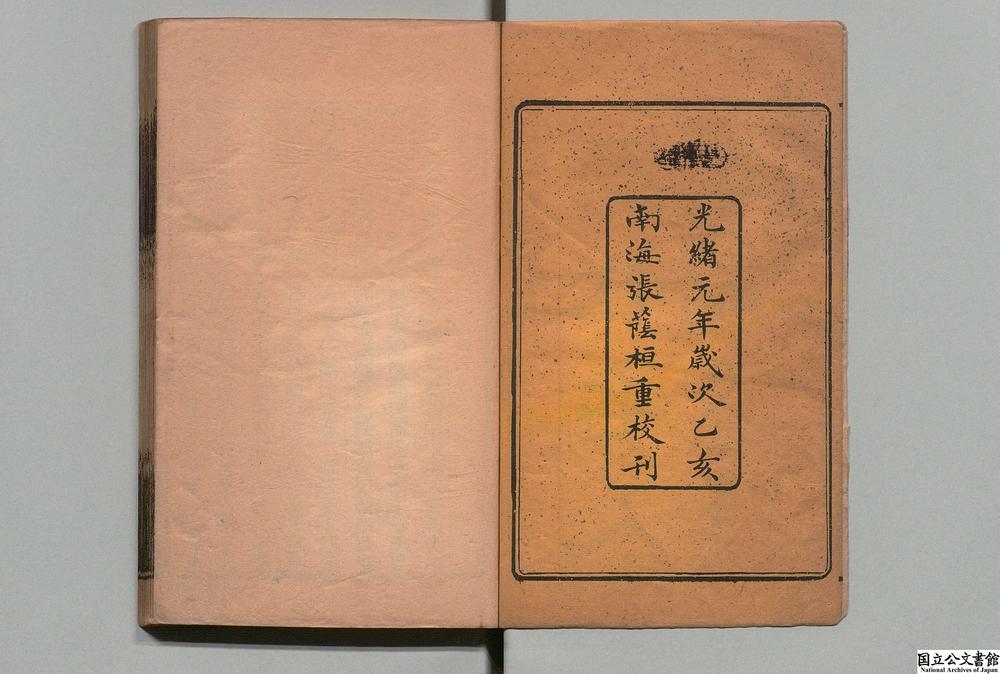 光緒元年歲次乙亥
南海張蔭桓重校刊
国立公文書館
National Archives of Japan